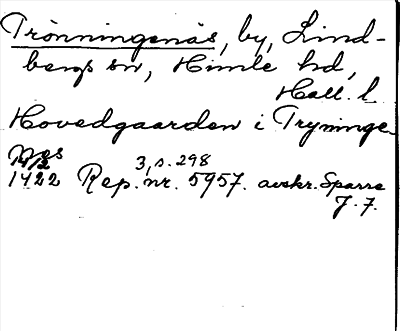 Trönningenäs, by, Lind-
bergs sn, Himle hd,
Hall. l.
Hovedgaarden i Tryninge
Nes
14/2 3, s. 298
1422 Rep. nr. 5957. avskr. Sparre
J. 7.